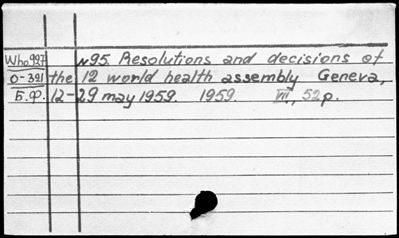 Who.927 №95. Resolutions and decisions of
0-321 the 12 world health assembly Geneva,
Б.Ф. 12-29 may 1959. 1959. VII, 52p.